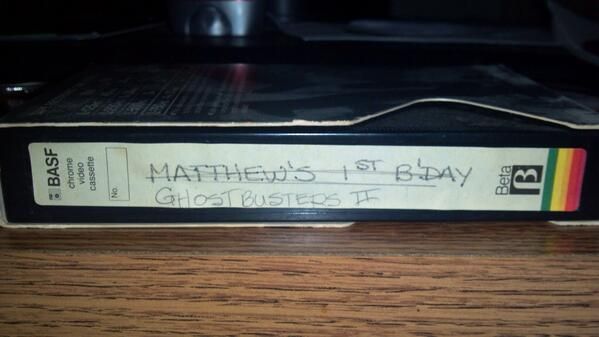 BASF
chrome
video
cassette
No.
MATTHEW'S 1ST B'DAY
GHOSTBUSTERS II
Beta
β